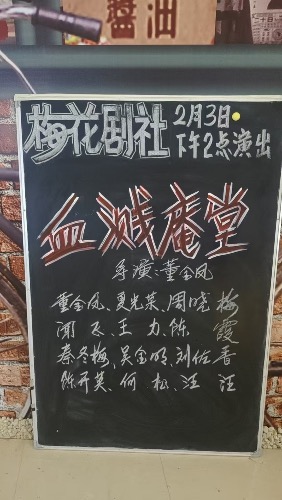 醬油
梅花剧社
2月3日
下午2点演出
血溅庵堂
导演:董金凤
董金凤、夏光荣、周晓梅
闻飞、王力、陈霞
春冬梅、吴金明、刘佐香
陈开英、何松、汪汪